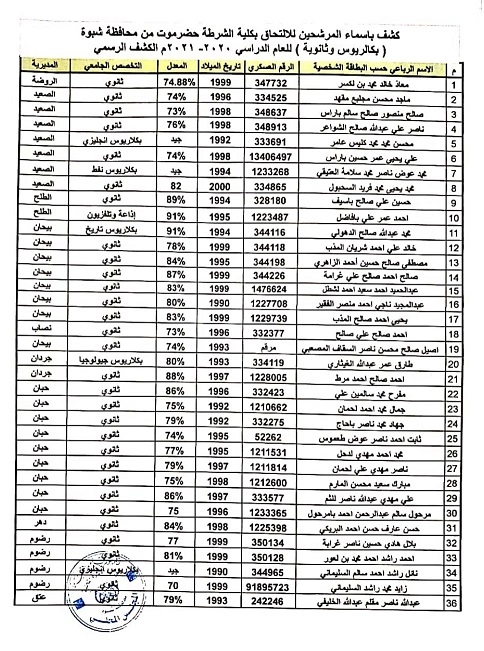 كشف باسماء المرشحين للالتحاق بكلية الشرطة حضرموت من محافظة شبوة
( بكالريوس وثانوية ) للعام الدراسي ٢٠٢٠- ٢٠٢١م الكشف الرسمي
م الاسم الرباعي حسب البطاقة الشخصية الرقم العسكري تاريخ الميلاد المعدل التخصص الجامعي المديرية
1 معاذ خالد محمد بن لكسر 347732 1999 74.88% ثانوي الروضة
2 ماجد محسن مجليع مقهد 334525 1996 74% ثانوي الصعيد
3 صالح منصور صالح سالم باراس 348637 1998 73% ثانوي الصعيد
4 ناصر علي عبدالله صالح الشواعر 348913 1998 76% ثانوي الصعيد
5 محسن محمد محمد كليس عامر 333691 1992 جيد بكلاريوس انجليزي الصعيد
6 علي يحيى عمر حسين باراس 13406497 1998 74% ثانوي الصعيد
7 محمد عوض ناصر محمد سلامة العتيقي 1233268 1994 جيد بكلاريوس نفط الصعيد
8 محمد يحيى محمد فريد السحبول 334865 2000 82 ثانوي الصعيد
9 حسين علي صالح باسيف 328180 1994 89% ثانوي الطلح
10 احمد عمر علي بافاضل 1223487 1995 91% إذاعة وتلفزيون الطلح
11 محمد عبدالله صالح الدهولي 344116 1994 91% بكلاريوس تاريخ بيحان
12 خالد علي احمد شريان المذب 344118 1999 78% ثانوي بيحان
13 مصطفى صالح حسين احمد الزاهري 344198 1995 84% ثانوي بيحان
14 صالح احمد صالح علي غرامة 344226 1999 87% ثانوي بيحان
15 عبدالحميد احمد سعيد احمد لشطل 1476624 1999 83% ثانوي بيحان
16 عبدالمجيد ناجي احمد منصر الفقير 1227708 1990 80% ثانوي بيحان
17 يحيى احمد صالح المذب 1229739 1999 83% ثانوي بيحان
18 احمد صالح علي صالح 332377 1996 73% ثانوي نصاب
19 اصيل صالح محسن ناصر السقاف المصعبي مرقم 1993 74% ثانوي بيحان
20 طارق عمر عبدالله الغيثاري 334119 1993 80% بكلاريوس جيولوجيا جردان
21 احمد صالح احمد مرط 1228005 1997 88% ثانوي جردان
22 مفرح محمد سالمين علي 332423 1996 86% ثانوي حبان
23 جمال محمد احمد لحمان 1210662 1992 75% ثانوي حبان
24 جهاد محمد ناصر باحاج 332275 1992 79% ثانوي حبان
25 ثابت احمد ناصر عوض طعموس 52262 1995 74% ثانوي حبان
26 محمد احمد مهدي لدحل 1211531 1995 77% ثانوي حبان
27 ناصر مهدي علي لحمان 1211814 1997 79% ثانوي حبان
28 مبارك سعيد محسن المارم 1212600 1998 75% ثانوي حبان
29 علي مهدي عبدالله ناصر للثم 333577 1997 86% ثانوي حبان
30 مرحول سالم عبدالرحمن احمد بامرحول 1233365 1996 75 ثانوي حبان
31 حسن عارف حسن احمد البريكي 1225398 1998 84% ثانوي دهر
32 بلال هادي حسين ناصر غرابة 350134 1999 77 ثانوي رضوم
33 احمد راشد احمد محمد بن لعور 350128 1999 81% ثانوي رضوم
34 نائل راشد احمد سالم السليماني 365944 1990 جيد بكلاريوس انجليزي رضوم
35 زايد محمد راشد السليماني 91895723 1999 70 ثانوي رضوم
36 عبدالله ناصر مقلم عبدالله الخليفي 242246 1993 79% ثانوي عتق